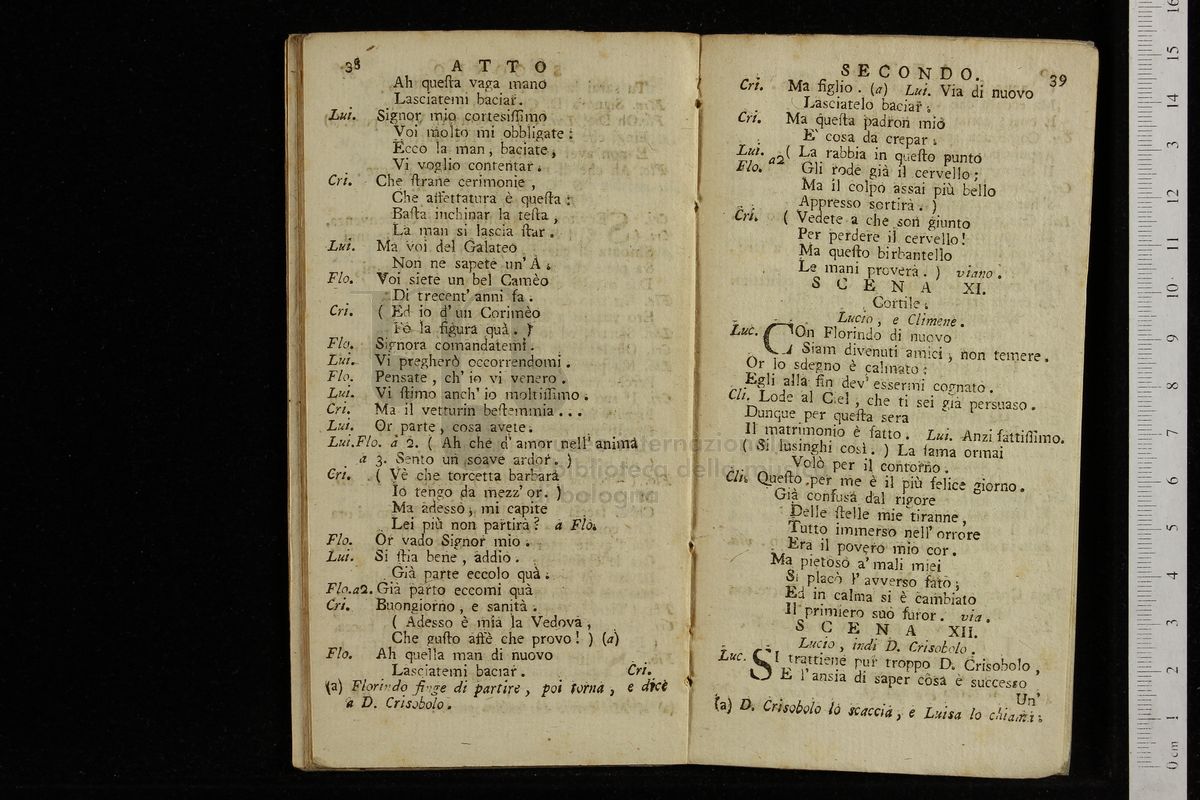 38 ATTO
Ah questa vaga mano
Lasciatemi baciar.
Lui. Signor mio cortesissimo
Voi molto mi obbligate:
Ecco la man, baciate,
Vi voglio contentar.
Cri. Che strane cerimonie,
Che affettatura è questa:
Basta inchinar la testa,
La man si lascia star.
Lui. Ma voi del Galateo
Non ne sapete un' A.
Flo. Voi siete un bel Camèo
Di trecent' anni fa.
Cri. ( Ed io d' un Corimèo
Fò la figura quà. )
Flo. Signora comandatemi.
Lui. Vi pregherò occorrendomi.
Flo. Pensate, ch' io vi venero.
Lui. Vi stimo anch' io moltissimo.
Cri. Ma il vetturin bestemmia...
Lui. Or parte, cosa avete.
Lui.Flo. a 2. ( Ah che d' amor nell' anima
a 3. Sento un soave ardor. )
Cri. ( Vè che torcetta barbara
Io tengo da mezz' or. )
Ma adesso, mi capite
Lei più non partirà? a Flo.
Flo. Or vado Signor mio.
Lui. Si stia bene, addio.
Già parte eccolo quà.
Flo.a2. Già parto eccomi quà
Cri. Buongiorno, e sanità.
( Adesso è mia la Vedova,
Che gusto affè che provo! ) (a)
Flo. Ah quella man di nuovo
Lasciatemi baciar. Cri.
(a) Florindo finge di partire, poi torna, e dice
a D. Crisobolo.
SECONDO. 39
Cri. Ma figlio. (a) Lui. Via di nuovo
Lasciatelo baciar.
Cri. Ma questa padron mio
E' cosa da crepar.
Lui. a2 ( La rabbia in questo punto
Flo. Gli rode già il cervello;
Ma il colpo assai più bello
Appresso sortirà. )
Cri. ( Vedete a che son giunto
Per perdere il cervello!
Ma questo birbantello
Le mani proverà. ) viano.
SCENA XI.
Cortile.
Lucio, e Climene.
Luc. COn Florindo di nuovo
Siam divenuti amici, non temere.
Or lo sdegno è calmato:
Egli alla fin dev' essermi cognato.
Cli. Lode al Ciel, che ti sei già persuaso.
Dunque per questa sera
Il matrimonio è fatto. Lui. Anzi fattissimo.
( Si lusinghi così. ) La fama ormai
Volò per il contorno.
Cli. Questo per me è il più felice giorno.
Già confusa dal rigore
Delle stelle mie tiranne,
Tutto immerso nell' orrore
Era il povero mio cor.
Ma pietoso a' mali miei
Si placò l' avverso fato;
Ed in calma si è cambiato
Il primiero suo furor. via.
SCENA XII.
Lucio, indi D. Crisobolo.
Luc. SI trattiene pur troppo D. Crisobolo,
E l' ansia di saper cosa è successo
Un'
(a) D. Crisobolo lo scaccia, e Luisa lo chiama.
internazionale
biblioteca della musica
bologna
0 cm 1 2 3 4 5 6 7 8 9 10 11 12 3 14 15 16